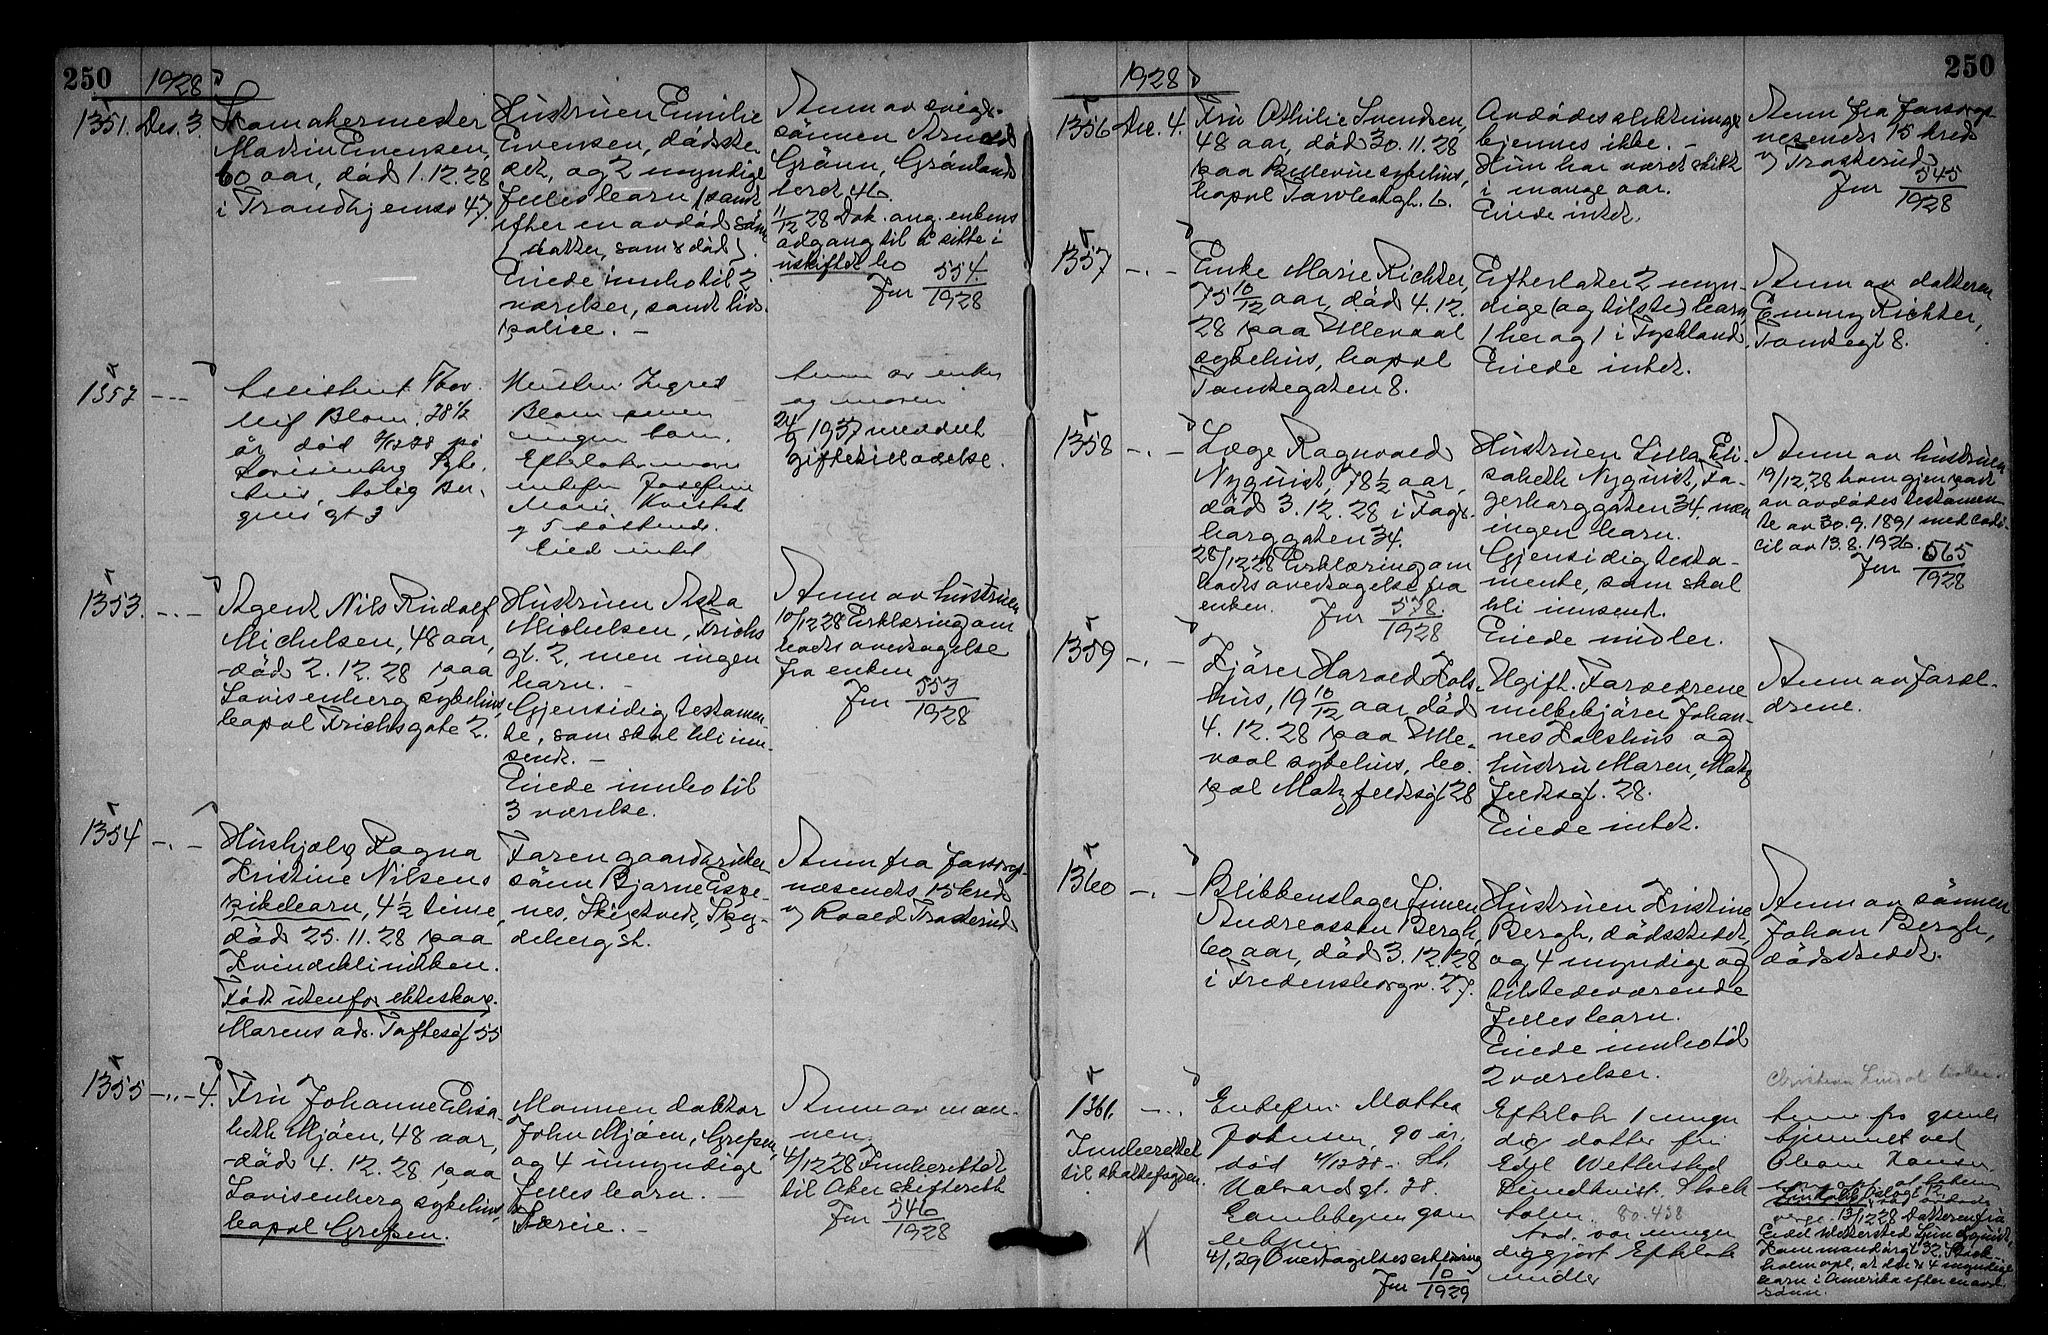 250
1928
1351. Des. 3.
Skomakermester
Martin Evensen,
60 aar, död 1.12.28
i Trondhjemsv 47.
Hustruen Emilie
Evensen, dödsste
det, og 2 myndige
fellesbarn, samt
efter en avdöd sönn
datter, som er död
Eiede innbo til 2
værelser, samt livs
police. –
Anm av sviger-
sönnen Arnold
Grönn, Grönlands
toret 46.
11/12 28 Dok. ang. enkens
adgang til å sitte i
uskiftet bo
Jnr 554/1928
1352 - - -
Assistent Thor
Leif Blom, 28 1/2
år död 2/12 28 på
Lovisenberg Syke
hus, bolig Ber-
gens gt 3
Hustru Ingrid
Blom
ingen barn.
Efterlater mor
enkefru Josefine
Marie
og 5 söskende.
Eied intet
Anm av enken
og moren
24/9 1937 meddelt
giftetilladelse.
1353. - . -
Agent Nils Rudolf
Michelsen, 48 aar,
död 2.12.28 paa
Lovisenberg sykehus,
bopæl Frichsgate 2.
Hustruen Asta
Michelsen, Frichs
gt. 2, men ingen
barn. –
Gjensidig testamen-
te, som skal bli inn-
sendt. –
Eiede innbo til
3 værelse.
Anm av hustruen
10/12 28 Erklæring om
boets overtagelse
fra enken
Jnr 553/1928
1354 - . -
Hushjelp Ragna
Kristine Nilsens
pikebarn, 4 1/2 time,
död 25.11.28 paa
Kvindeklinikken.
Födt utenfor ekteskap.
Morens adr. Toftesgt 55
Faren gaardbruker
sönn Bjarne Espe-
nes, Skiptvet, Spy-
deberg st.
Anm fra Forsorgs-
væsenets 15 kreds
v Roald Trosterud
1355 - .. - 4.
Fru Johanne Elisa-
beth Mjöen, 48 aar,
död 4.12.28 paa
Lovisenberg sykehus,
bopæl Grefsen.
Mannen doktor
John Mjöen, Grefsen,
og 4 umyndige
fellesbarn. –
Særeie. –
Anm av man-
nen.
4/12 28 Innberettet
til Aker skifterett
Jnr 546/1928
250
1928
1356 Des. 4.
Fru Othilie Svendsen,
48 aar, död 30.11.28
paa Bellevue sykehus,
bopæl
Avdödes slektninger
kjennes ikke. –
Hun har været skilt
i mange aar.
Eiede intet.
Anm fra Forsorgs-
væsenets 15 kreds
v Trosterud
Jnr 545/1928
1357 - . -
Enke Marie Richter,
75 10/12 aar, död 4.12.
28 paa Ullevaal
sykehus, bopæl
Tomtegaten 8.
Efterlater 2 myn-
dige (og tilsted) barn
1 her og 1 i Tyskland.
Eiede intet.
Anm av datteren
Emmy Richter,
Tomtegt 8.
1358 - . -
Læge Ragnvald
Nyquist, 78 1/2 aar,
död 3.12.28 i Fager-
borggaten 34.
28/12 28 Erklæring om
boets overtagelse fra
enken.
Jnr 578/1928
Hustruen Lilla Eli-
sabeth Nyquist, Fa-
gerborggaten 34, men
ingen barn.
Gjensidig testa-
mente, som skal
bli innsendt.
Eiede midler.
Anm av hustruen
19/12 28 bom gjenpart
av avdödes testamen-
te av 30.9.1891 med codi-
cil av 13.8.1926.
Jnr 565/1928
1359 - . -
Kjörer Harald Kols-
hus, 19 10/12 aar, död
4.12.28 paa Ulle-
vaal sykehus, bo-
pæl Motzfeldtsgt 28
Ugift. Forældrene
melkekjörer Johan-
nes Kolshus og
hustru Maren, Motz
feldtsgt. 28.
Eiede intet.
Anm av foræl-
drene.
1360 - . -
Blikkenslager Simen
Andreassen Bergh,
60 aar, död 3.12.28
i Fredensborgv. 27.
Hustruen Kristine
Bergh, dödsstedet,
og 4 myndige og
tilstedeværende
fellesbarn.
Eiede innbo til
2 værelser.
Anm av sönnen
Johan Bergh,
dödsstedet.
1361. - . .
Innberettet
til skattefogden.
Enkefru Mathea
Johnsen, 90 år,
död 4/12 28 St.
Halvards gt. 28.
Gamlebyen gam
lehjem
4/1 29 Overtagelseserklæring
Jnr 10/1929
Efterlot 1 myn
dig datter fru
Edel Wettersted
Lindkvist, Stock
holm. 80.438
Avd. var umyn
diggjort Efterlot
midler
Anm fra gamle
hjemmet ved
Hansen
13/12 28 Datteren fru
Edel Wettersted Lindquist,
Kommendörgt 32, Stock-
holm opl. at der er 4 myndige
barn i Amerika efter en avd.
sönn.